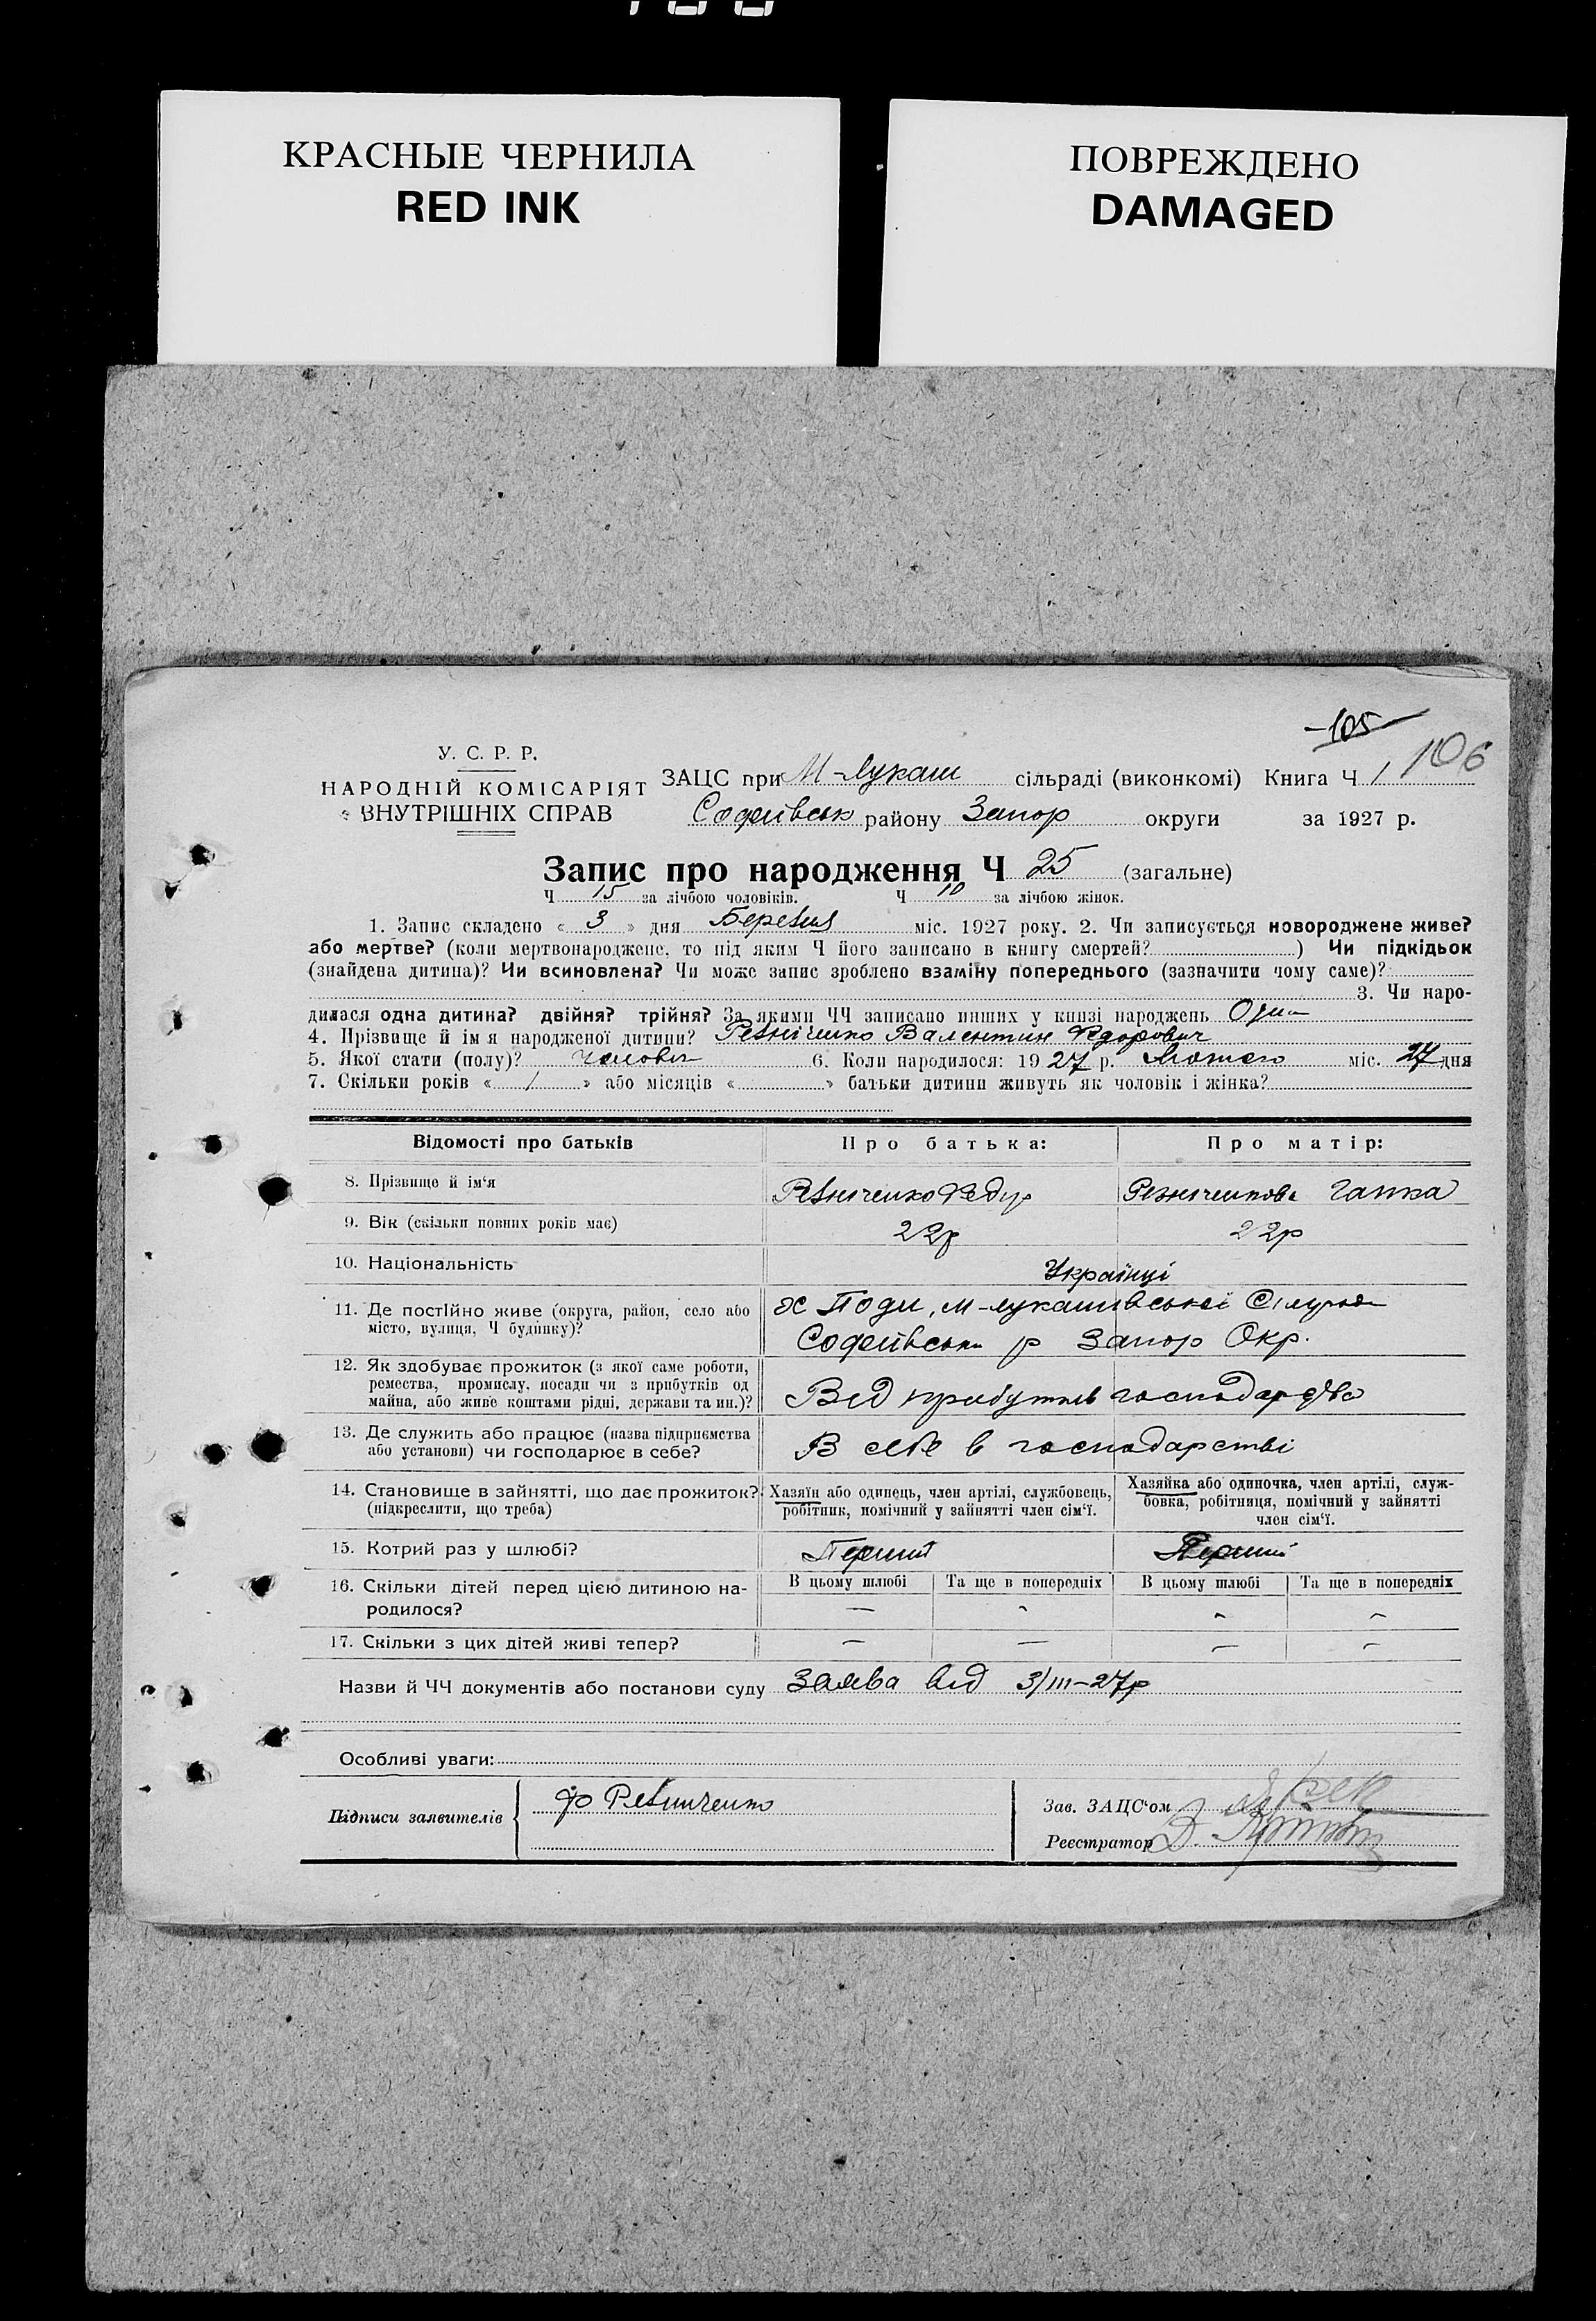 КРАСНЫЕ ЧЕРНИЛА
RED INK
ПОВРЕЖДЕНО
DAMAGED
105
106
У. С. Р. Р.
НАРОДНІЙ КОМІСАРІЯТ
ВНУТРІШНІХ СПРАВ
ЗАЦС при М-Лукаш сільраді (виконкомі) Книга Ч 1
Софіївськ району Запор округи за 1927 р.
Запис про народження Ч 25 (загальне)
Ч 15 за лічбою чоловіків. Ч 10 за лічбою жінок.
1. Запис складено « 3 » дня Березня міс. 1927 року. 2. Чи записується новороджене живе?
або мертве? (коли мертвонароджене, то під яким Ч його записано в книгу смертей? ) Чи підкідьок
(знайдена дитина)? Чи всиновлена? Чи може запис зроблено взаміну попереднього (зазначити чому саме)?
3. Чи наро-
дилася одна дитина? двійня? трійня? За якими ЧЧ записано инших у книзі народжень Один
4. Прізвище й ім'я народженої дитини? Резніченко Валентин Федорович
5. Якої стати (полу)? чоловіч 6. Коли народилося: 1927 р. Лютого міс. 27 дня
7. Скільки років « 1 » або місяців « » батьки дитини живуть як чоловік і жінка?
Відомості про батьків Про батька: Про матір:
8. Прізвище й ім‘я Резніченко Федір Резніченкова Гапка
9. Вік (скільки повних років має) 22р 22р
10. Національність Українці
11. Де постійно живе (округа, район, село або місто, вулиця, Ч будинку)?
М-лукашівської Сілради
Софіївськ р Запор Окр.
12. Як здобуває прожиток (з якої саме роботи,
ремества, промислу, посади чи з прибутків од
майна, або живе коштами рідні, держави та ин.)?
Від прибутків господарства
13. Де служить або працює (назва підприємства
або установи) чи господарює в себе?
В себе в господарстві
14. Становище в зайнятті, що дає прожиток?
(підкреслити, що треба)
Хазяїн або одинець, член артілі, службовець,
робітник, помічний у зайнятті член сім‘ї.
Хазяйка або одиночка, член артілі, служ-
бовка, робітниця, помічний у зайнятті
член сім‘ї.
15. Котрий раз у шлюбі? Перший Перший
16. Скільки дітей перед цією дитиною на-
родилося?
В цьому шлюбі Та ще в попередніх В цьому шлюбі Та ще в попередніх
— - - -
17. Скільки з цих дітей живі тепер? — — — -
Назви й ЧЧ документів або постанови суду Заява від 3/III-27р
Особливі уваги:
Підписи заявителів Ф Резниченко
Зав. ЗАЦС‘ом
Реєстратор